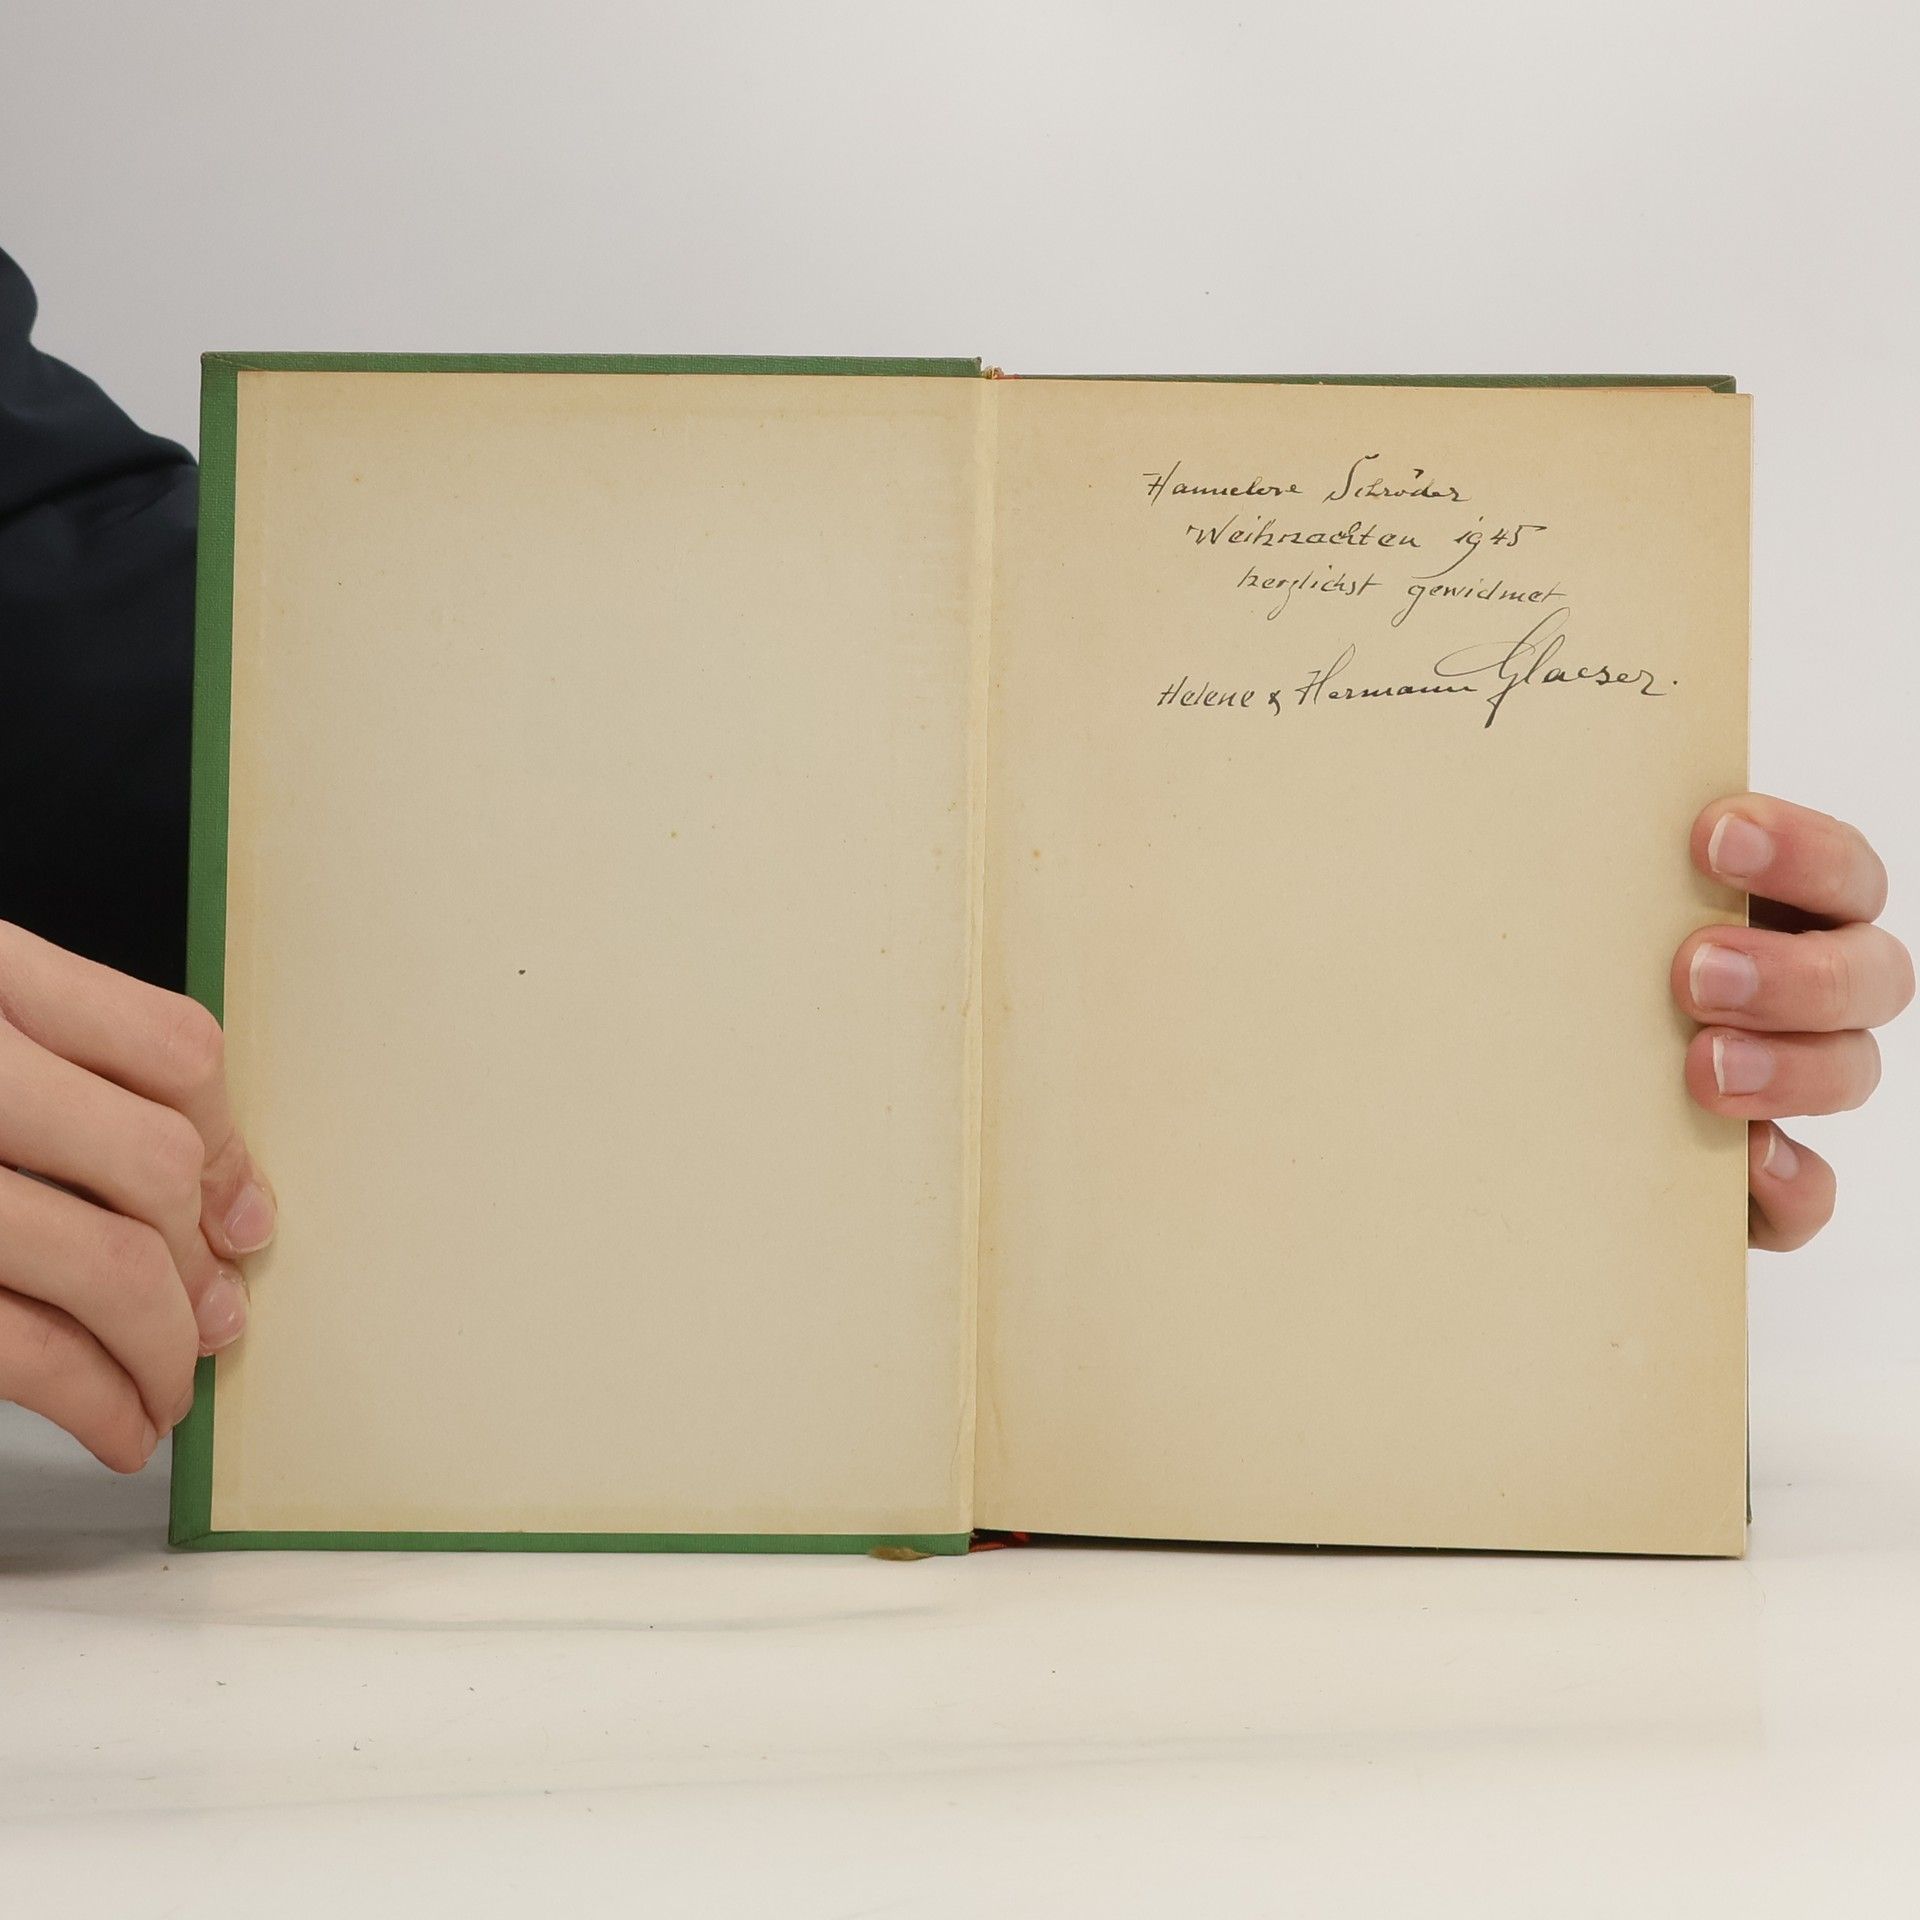 Hannelore Schröder
Weihnachten 1945
herzlichst gewidmet
Helene & Hermann Glaeser.